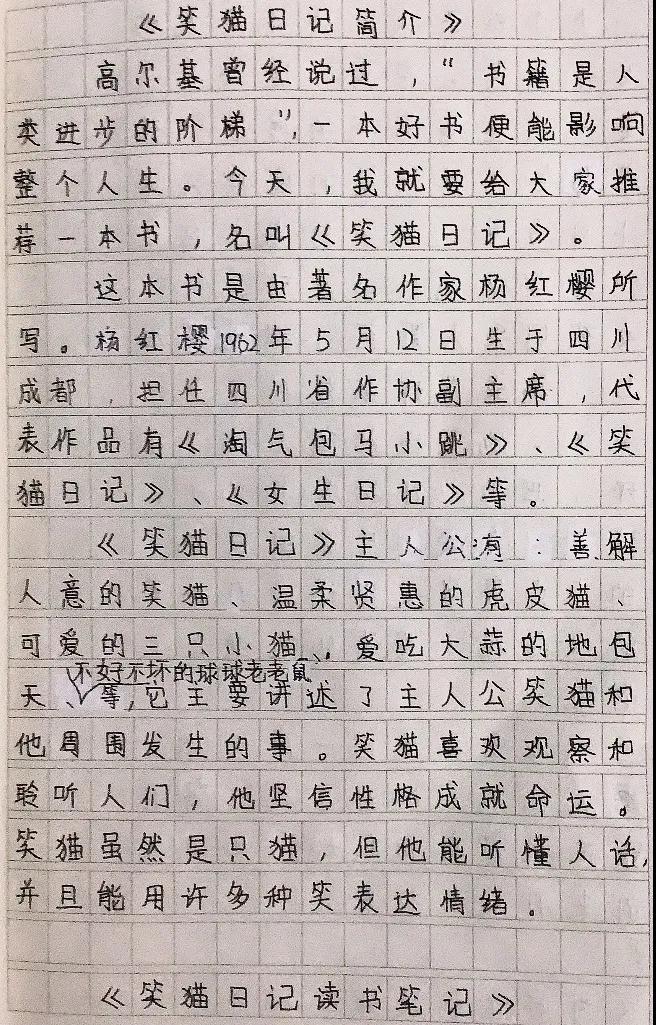 《笑猫日记简介》
高尔基曾经说过，“书籍是人
类进步的阶梯”，一本好书便能影响
整个人生。今天，我就要给大家推
荐一本书，名叫《笑猫日记》。
这本书是由著名作家杨红樱所
写。杨红樱1962年5月12日生于四川
成都，担任四川省作协副主席，代
表作品有《淘气包马小跳》、《笑
猫日记》、《女生日记》等。
《笑猫日记》主人公有：善解
人意的笑猫、温柔贤惠的虎皮猫、
可爱的三只小猫、爱吃大蒜的地包
不好不坏的球球老老鼠
天、等，它主要讲述了主人公笑猫和
他周围发生的事。笑猫喜欢观察和
聆听人们，他坚信性格成就命运。
笑猫虽然是只猫，但他能听懂人话，
并且能用许多种笑表达情绪。
《笑猫日记读书笔记》